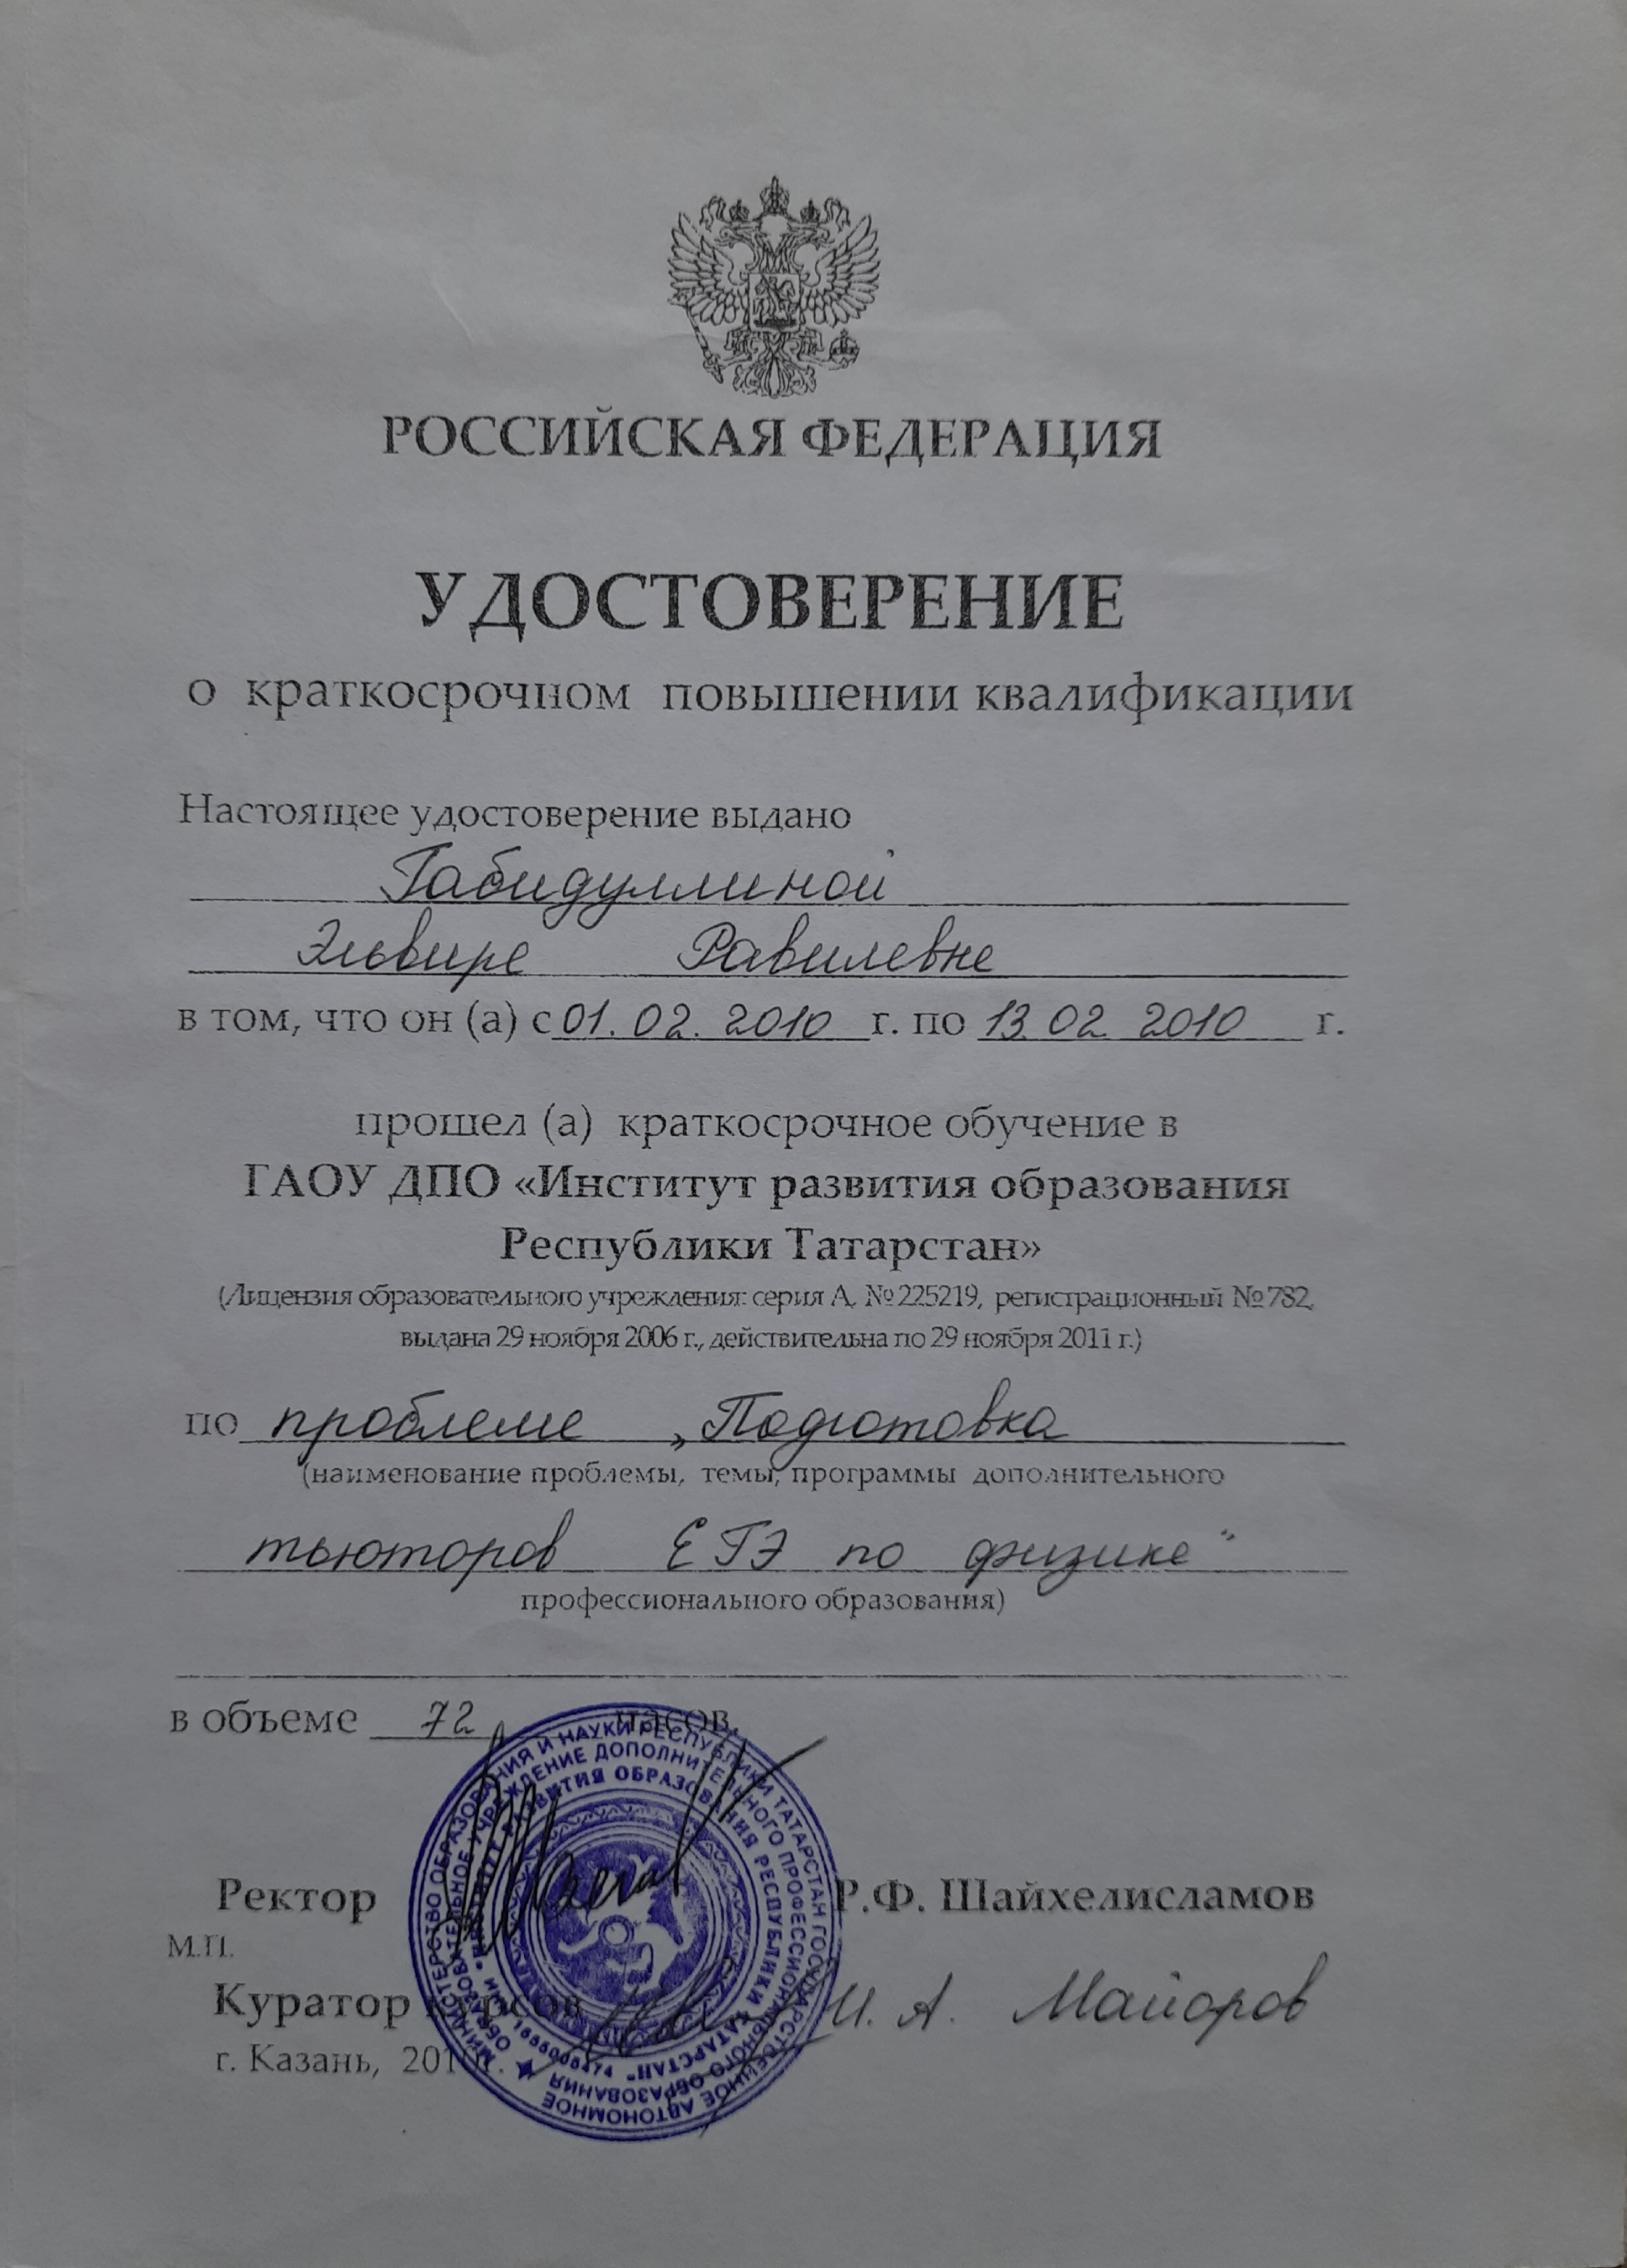 РОССИЙСКАЯ ФЕДЕРАЦИЯ
УДОСТОВЕРЕНИЕ
о краткосрочном повышении квалификации
Настоящее удостоверение выдано
Габидуллиной
Эльвире Равилевне
в том, что он (а) с 01.02.2010 г. по 13.02.2010 г.
прошел (а) краткосрочное обучение в
ГАОУ ДПО «Институт развития образования
Республики Татарстан»
(Лицензия образовательного учреждения: серия А, № 225219, регистрационный № 782,
выдана 29 ноября 2006 г., действительна по 29 ноября 2011 г.)
по проблеме „Подготовка
(наименование проблемы, темы, программы дополнительного
тьюторов ЕГЭ по физике"
профессионального образования)
в объеме 72 часов.
МИНИСТЕРСТВО ОБРАЗОВАНИЯ И НАУКИ РЕСПУБЛИКИ ТАТАРСТАН ГОСУДАРСТВЕННОЕ АВТОНОМНОЕ
ОБРАЗОВАТЕЛЬНОЕ УЧРЕЖДЕНИЕ ДОПОЛНИТЕЛЬНОГО ПРОФЕССИОНАЛЬНОГО ОБРАЗОВАНИЯ
РАЗВИТИЯ ОБРАЗОВАНИЯ РЕСПУБЛИКИ ТАТАРСТАН"
Ректор Р.Ф. Шайхелисламов
М.П.
Куратор курсов И. А. Майоров
г. Казань, 2010г.